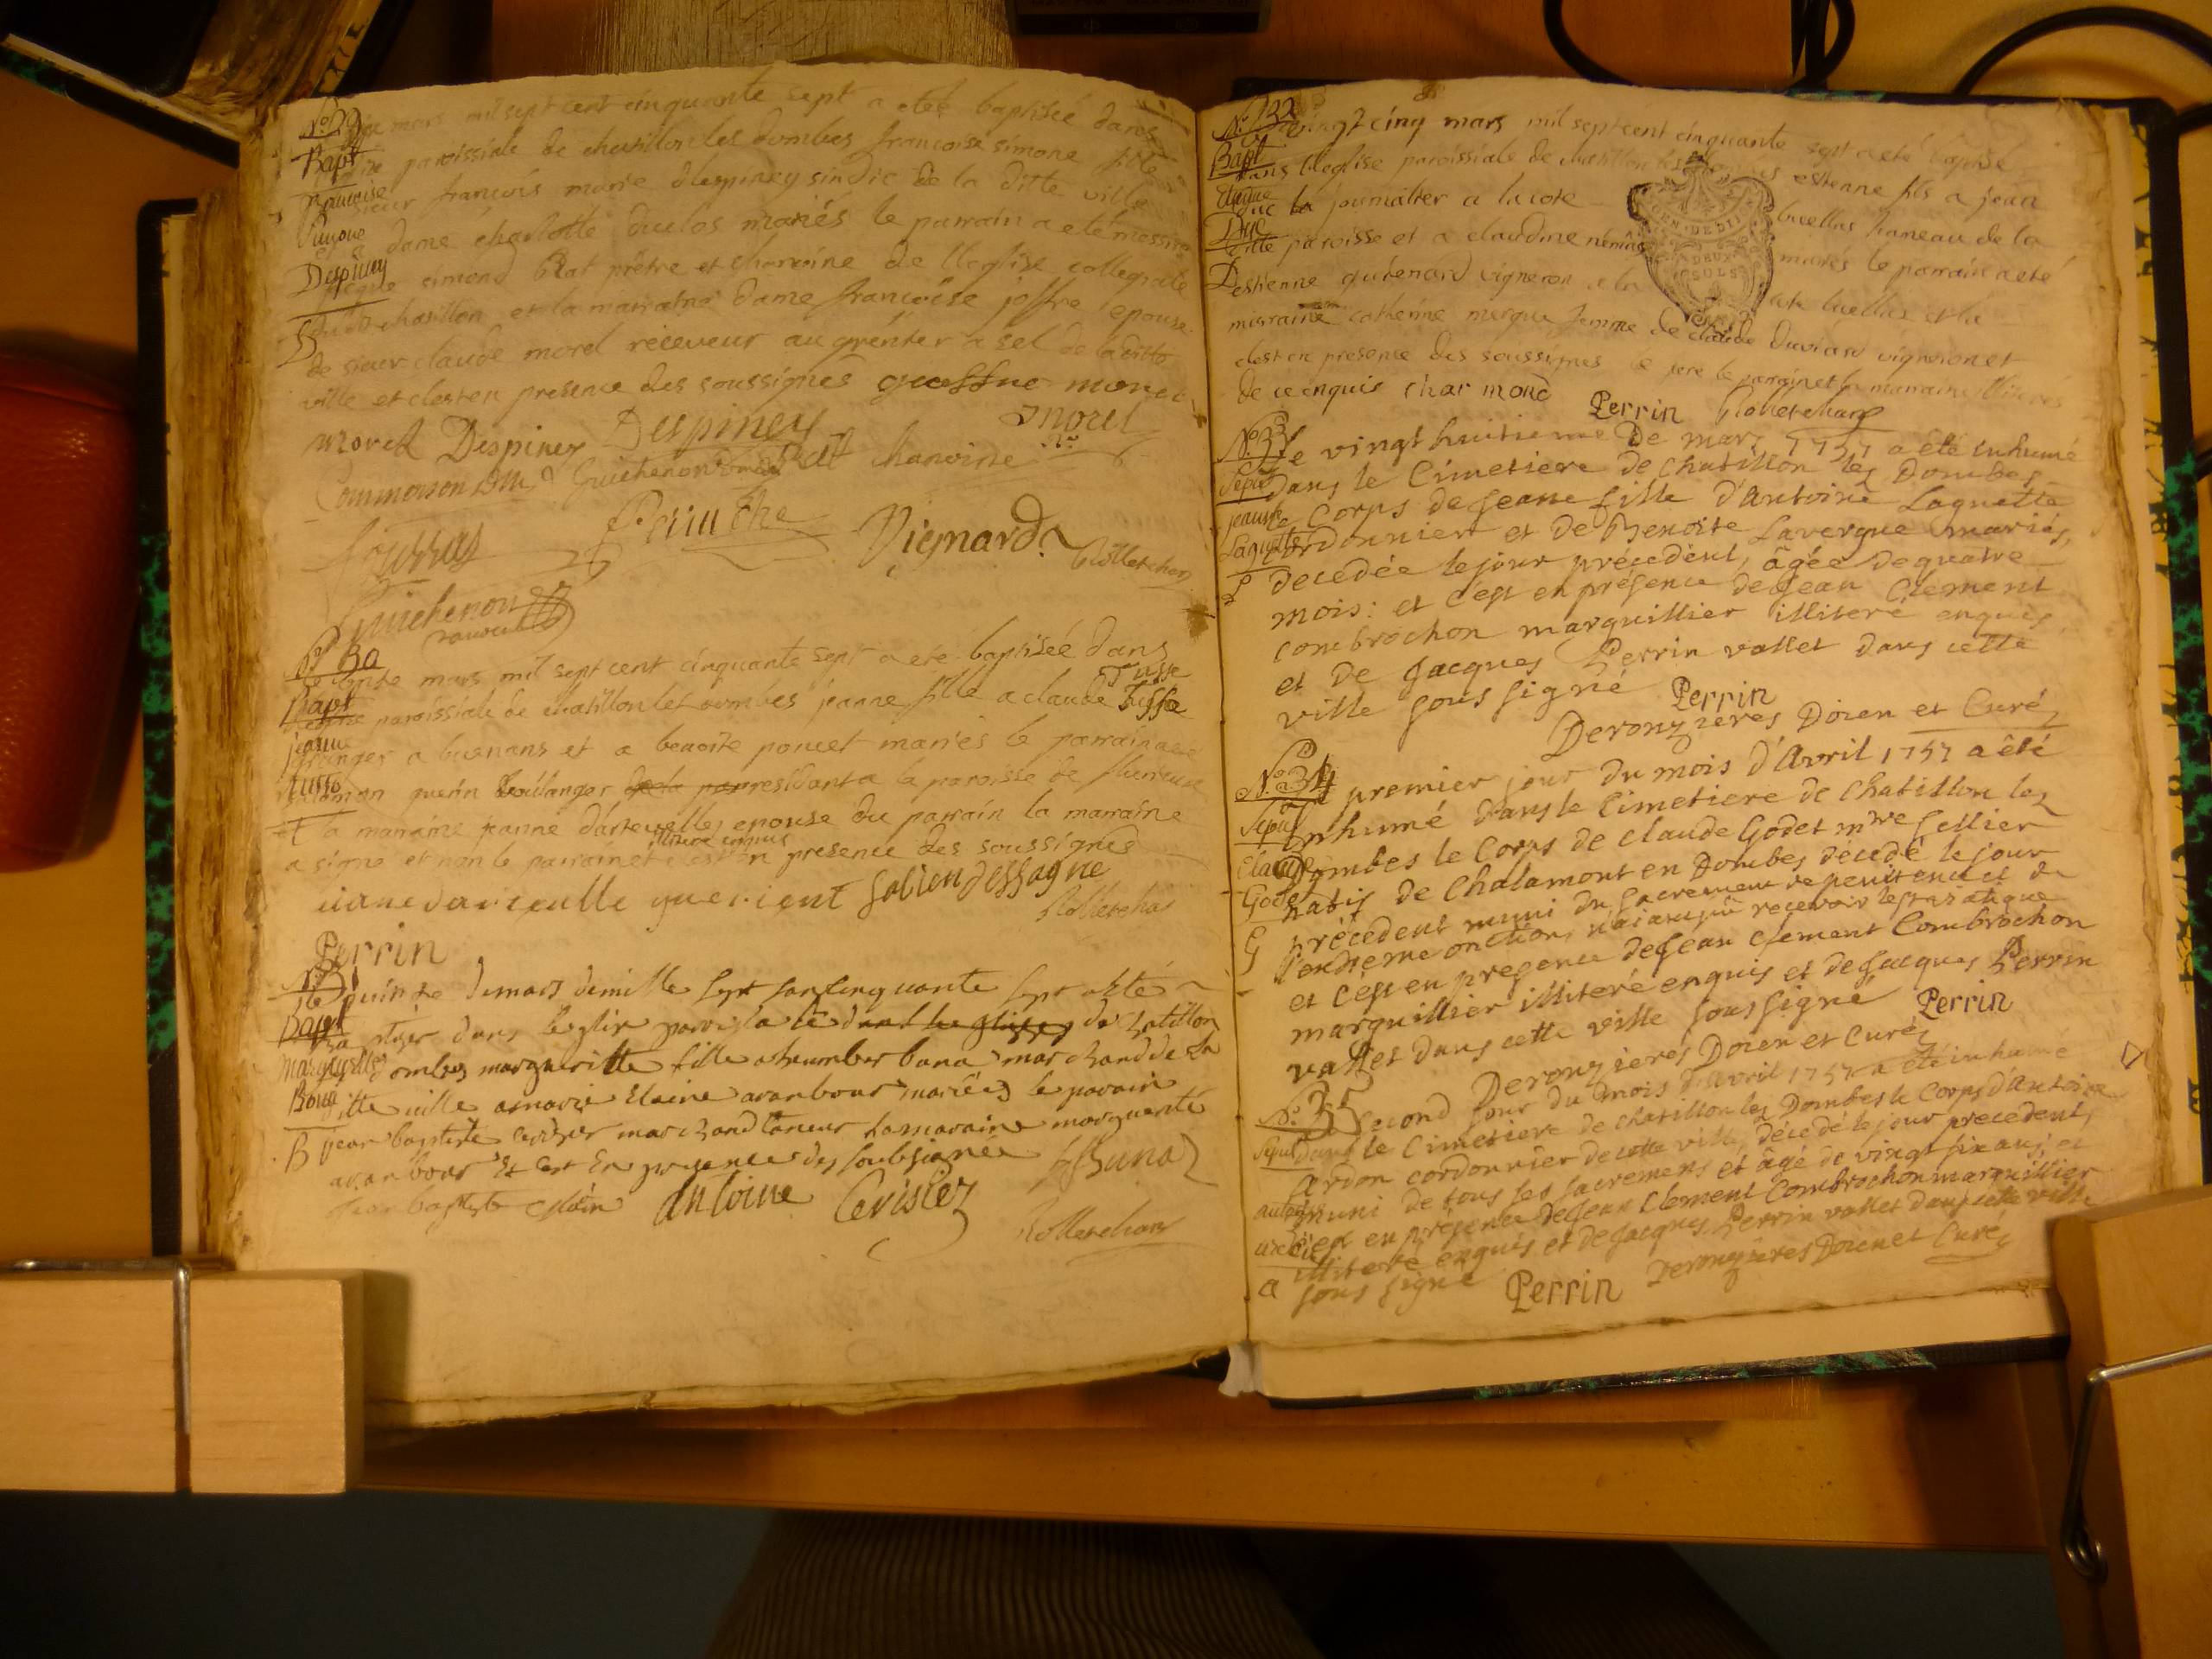 N.º 29
Bapt
francoise
Simone
Despiney
D
mars mil sept cent cinquante sept a eteé baptisée dans
paroissiale de chatillon les dombes francoise simone fille
sieur françois marie d'lespiney sindic de la ditte ville
dame charlotte duclos mariés le parrain a eté messire
simond Rat prêtre et chanoine de lleglise collegiale
chatillon et la marraine dame francoise joffre epouse
de sieur claude morel receveur au grenier a sel de laditte
ville et clest en presence des soussignés joffre morel
morel Despiney Despiney Morel
Commerson D.M. Guichenon Rat chanoine
Perruche Vignard Rolletchon
Guichenon
N.º 30
Bapt
jeanne
Tusse
T
mars mil sept cent cinquante sept a eté baptisée dans
paroissiale de chatillon les dombes jeanne fille a claude Tusse
granger a buenans et a benoite poncet mariés le parrain a eté
guerin boulanger residant a la paroisse de
la marraine jeanne darteuelle epouse du parrain la marraine
a signé et non le parrain illiteré enquis et clest en presence des soussignés
Rolletchon
Perrin
N.º 31
Bapt
margueritte
Buna
B
le quinze de mars de mille sept san sinquante sept a été
batiser dans leglise paroissialle de chatillon
les dombes margueritte fille a humber buna marchand de la
ditte ville a marie Elaine aranbour mariés le parain
jean baptiste cerisier marchand taneur la maraine marguerite
aranbour Et cest En presence des soubsignés
Buna
Antoine Cerisier
Rolletchon
N.º 32
Bapt
etienne
Duc
D
vingt cinq mars mil sept cent cinquante sept a eté baptisé
dans lleglise paroissiale de chatillon les dombes estienne fils a jean
duc journallier a la cote bucellas hameau de la
ditte paroisse et a claudine mariés le parrain a eté
estienne guichenard vigneron a la cote bucellas et la
marraine catherine mergue femme de claude vigneron et
clest en presence des soussignés le pere le parrain et la marraine illiteres
de ce enquis charmond Perrin Rolletchon
GEN. DE DIJON
DEUX
SOLS
N.º 33
Sepult
jeanne
Laguette
L
Le vingt huitieme De mars 1757 a été inhumé
dans le Cimetiere de Chatillon les Dombes
le Corps de Jeane fille d'Antoine Laguette
Cordonnier et de Benoite Lavergue mariés,
decedée le jour précédent, âgée de quatre
mois: et c'est en présence de Jean Clement
combrochon marguillier illiteré enquis
et de Jacques Perrin vallet dans cette
ville sous signé Perrin
Deronzieres Doien et Curé
N.º 34
Sepult
Claude
Godet
G
Le premier jour du mois d'Avril 1757 a été
inhumé dans le Cimetiere de Chatillon les
Dombes le Corps de Claude Godet mtre Sellier
natif de Chalamont en Dombes décedé le jour
précédent muni du Sacrement de penitence et de
l'extreme onction, n'aiant pû recevoir le viatique
et c'est en presence de Jean Clement Combrochon
marguillier illiteré enquis et de Jacques Perrin
vallet dans cette ville sous signé Perrin
Deronzieres Doien et Curé
N.º 35
Sepult
antoine
ardon
a
second jour du mois d'avril 1757 a été inhumé
dans le Cimetiere de Chatillon les Dombes le Corps d'Antoine
Ardon cordonnier de cette ville, décedé le jour precedent,
muni de tous ses sacremens et âgé de vingt six ans; et
c'est en présence de Jean Clement Combrochon marguillier
illiteré enquis et de Jacques Perrin vallet dans cette ville
sous signé Perrin Deronzieres Doien et Curé